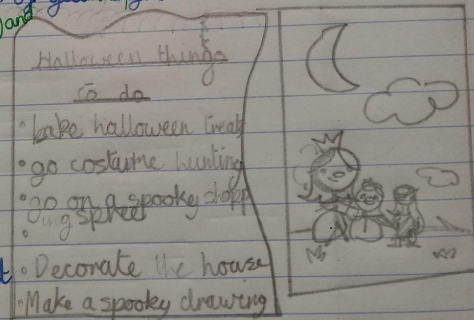 and
Halloween things
to do
• bake halloween treats
• go costume hunting
• go on a spooky shopp
• ing spree
• Decorate the house
• Make a spooky drawing